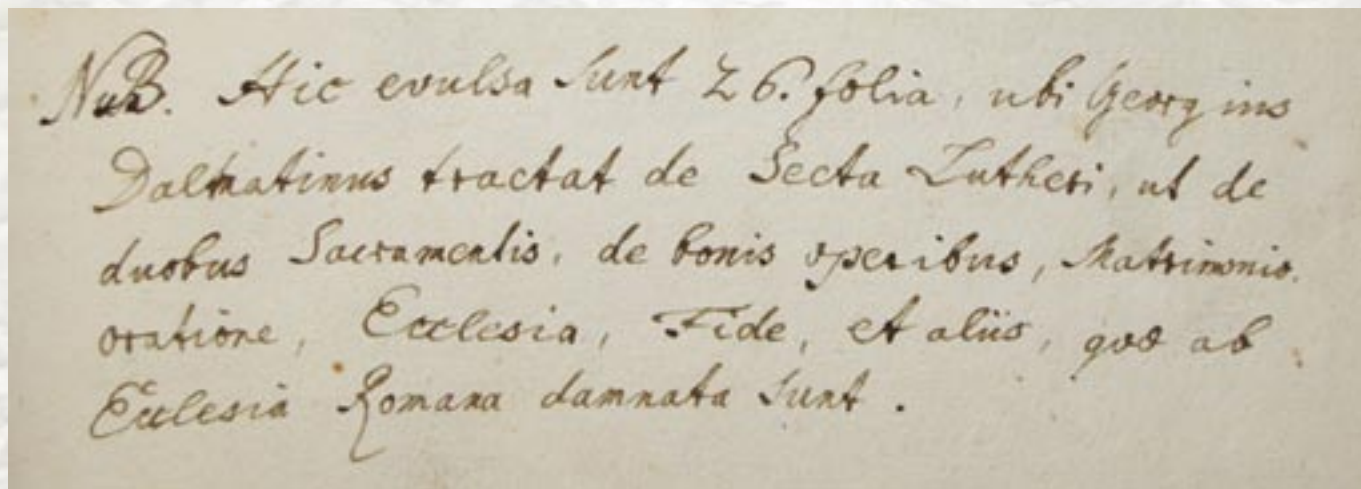 NB. Hic evulsa sunt 26. folia, ubi Georgius
Dalmatinus tractat de Secta Lutheri, ut de
duobus Sacramentis, de bonis operibus, Matrimonio.
oratione, Ecclesia, Fide, et aliis, quæ ab
Ecclesia Romana damnata sunt.